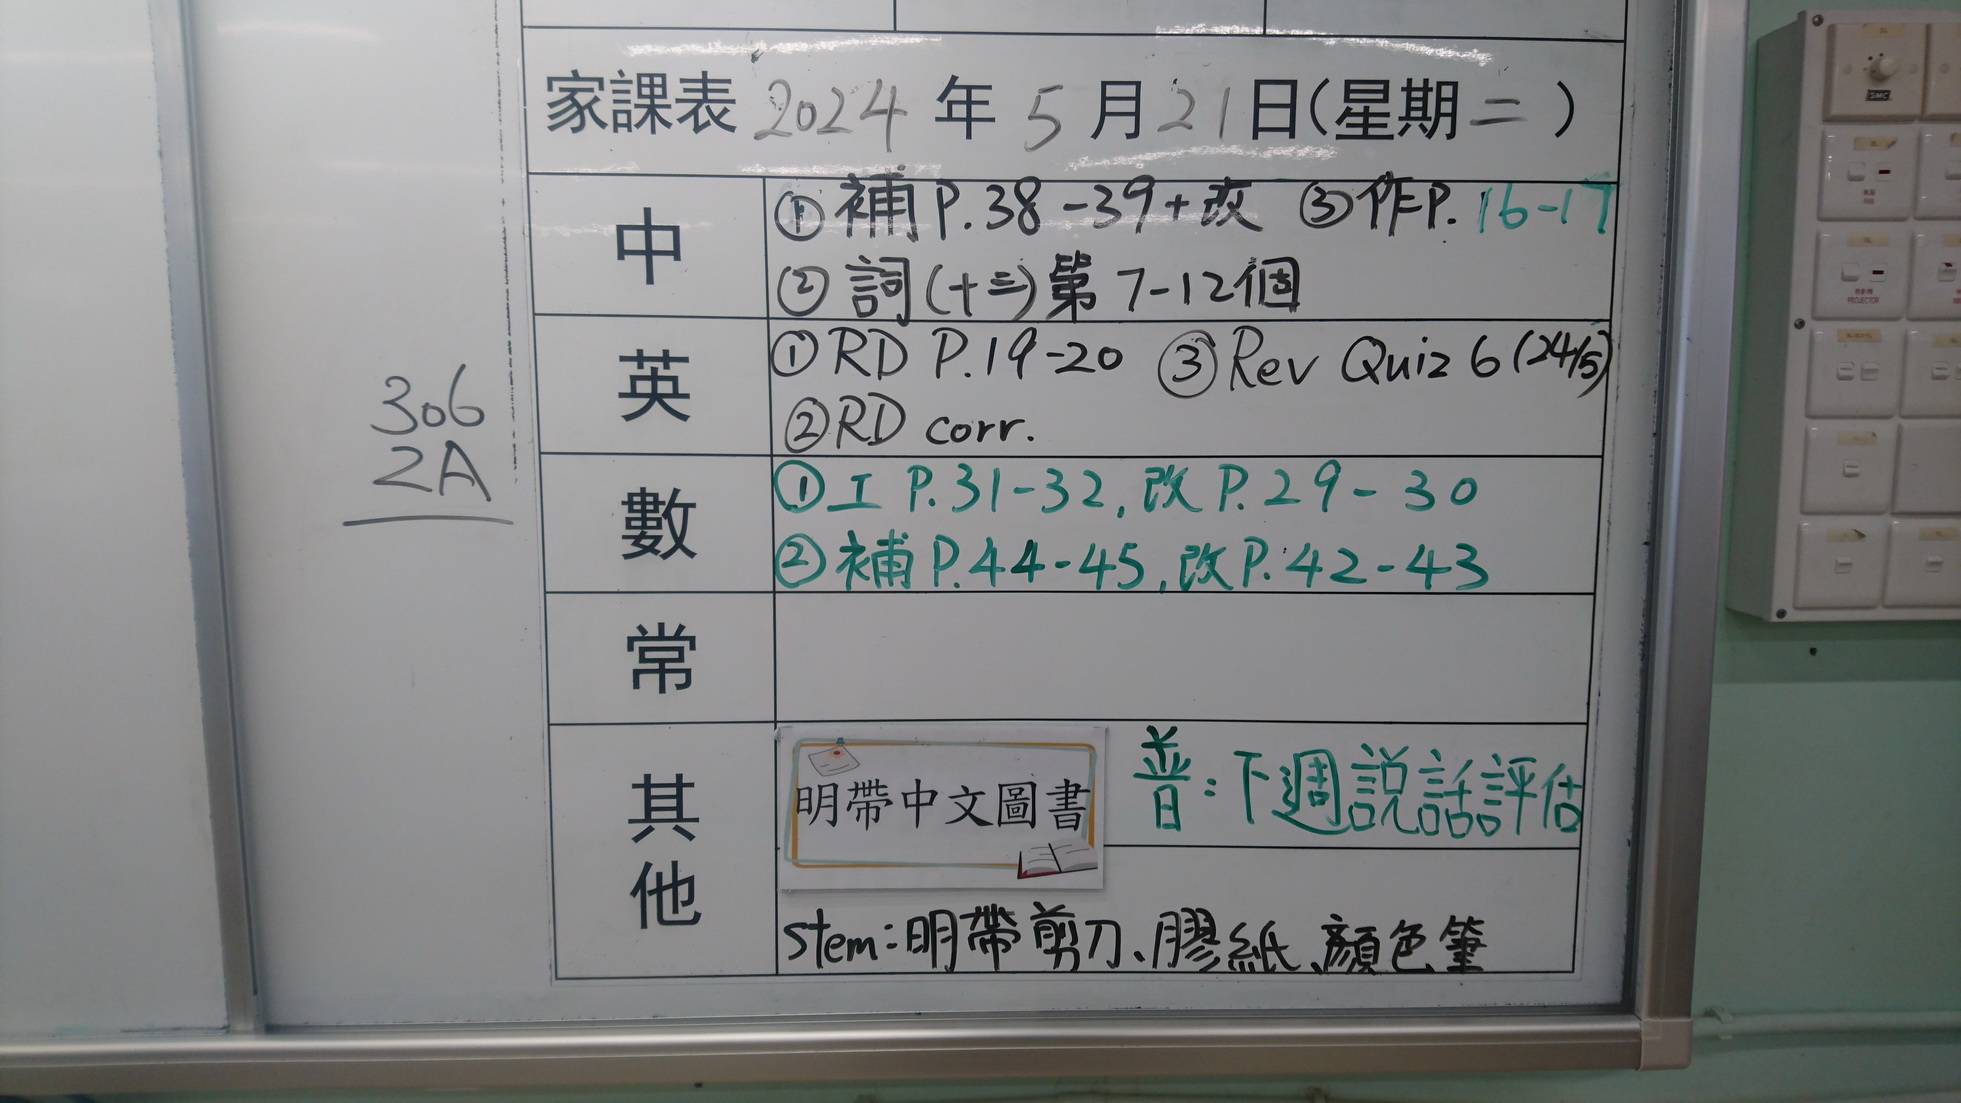 家課表 2024 年 5 月 21 日(星期二)
中
① 補 P.38-39+改 ③ 作 P. 16-17
② 詞(十三)第 7-12個
英
① RD P.19-20 ③ Rev Quiz 6 (24/5)
② RD corr.
306
2A
數
① 工 P.31-32, 改 P.29-30
② 補 P.44-45, 改 P.42-43
常
其他
明帶中文圖書
普:下週説話評估
stem:明帶剪刀、膠紙、顏色筆
SMC
PROJECTOR